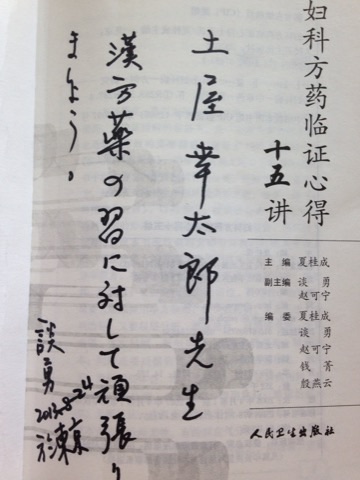 妇科方药临证心得
十五讲
主 编 夏桂成
副主编 谈 勇
赵可宁
编 委 夏桂成
谈 勇
赵可宁
钱 菁
殷燕云
人民卫生出版社
土屋幸太郎先生
漢方薬の習に対して頑張り
ましょう。
談勇
2013-8-24
於東京